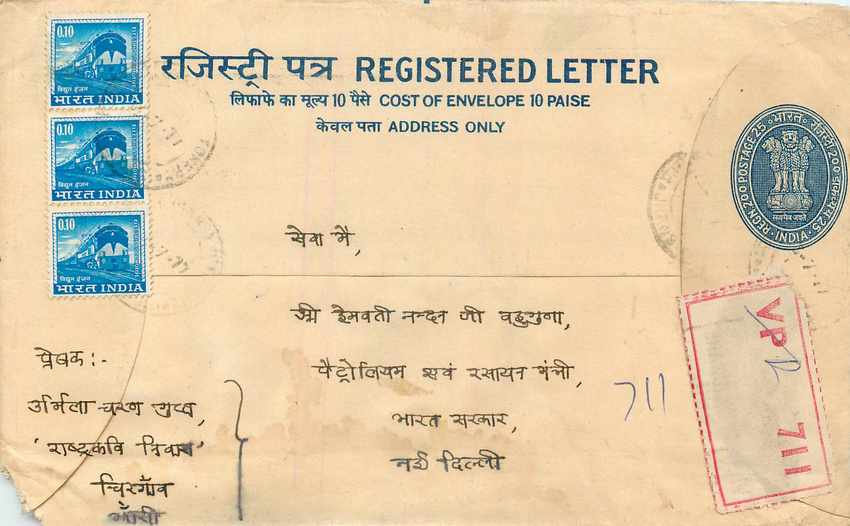 0.10
विद्युत इंजन
भारत INDIA
0.10
विद्युत इंजन
भारत INDIA
0.10
विद्युत इंजन
भारत INDIA
रजिस्ट्री पत्र REGISTERED LETTER
लिफाफे का मूल्य 10 पैसे COST OF ENVELOPE 10 PAISE
केवल पता ADDRESS ONLY
REGN 200 POSTAGE 25 भारत रजिस्ट्री 200 डाक-व्यय 25
सत्यमेव जयते
INDIA
सेवा मै,
श्री हेमवती नन्दन जी बहुगुणा,
पैट्रोलियम एवं रसायन मंत्री,
भारत सरकार,
नई दिल्ली
711
VP
711
प्रेषक :-
उर्मिला चरण गुप्त,
'राष्ट्रकवि निवास'
चिरगाँव
झाँसी